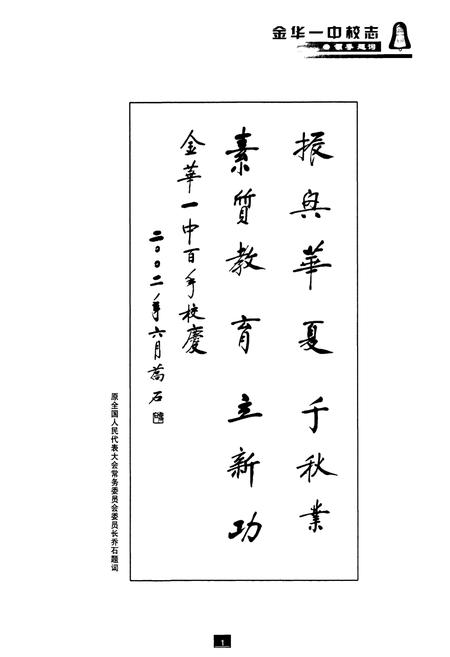 金华一中校志
领导题词
振興華夏千秋業
素質教育立新功
金華一中百年校慶
二〇〇二年六月喬石
原全国人民代表大会常务委员会委员长乔石题词
1